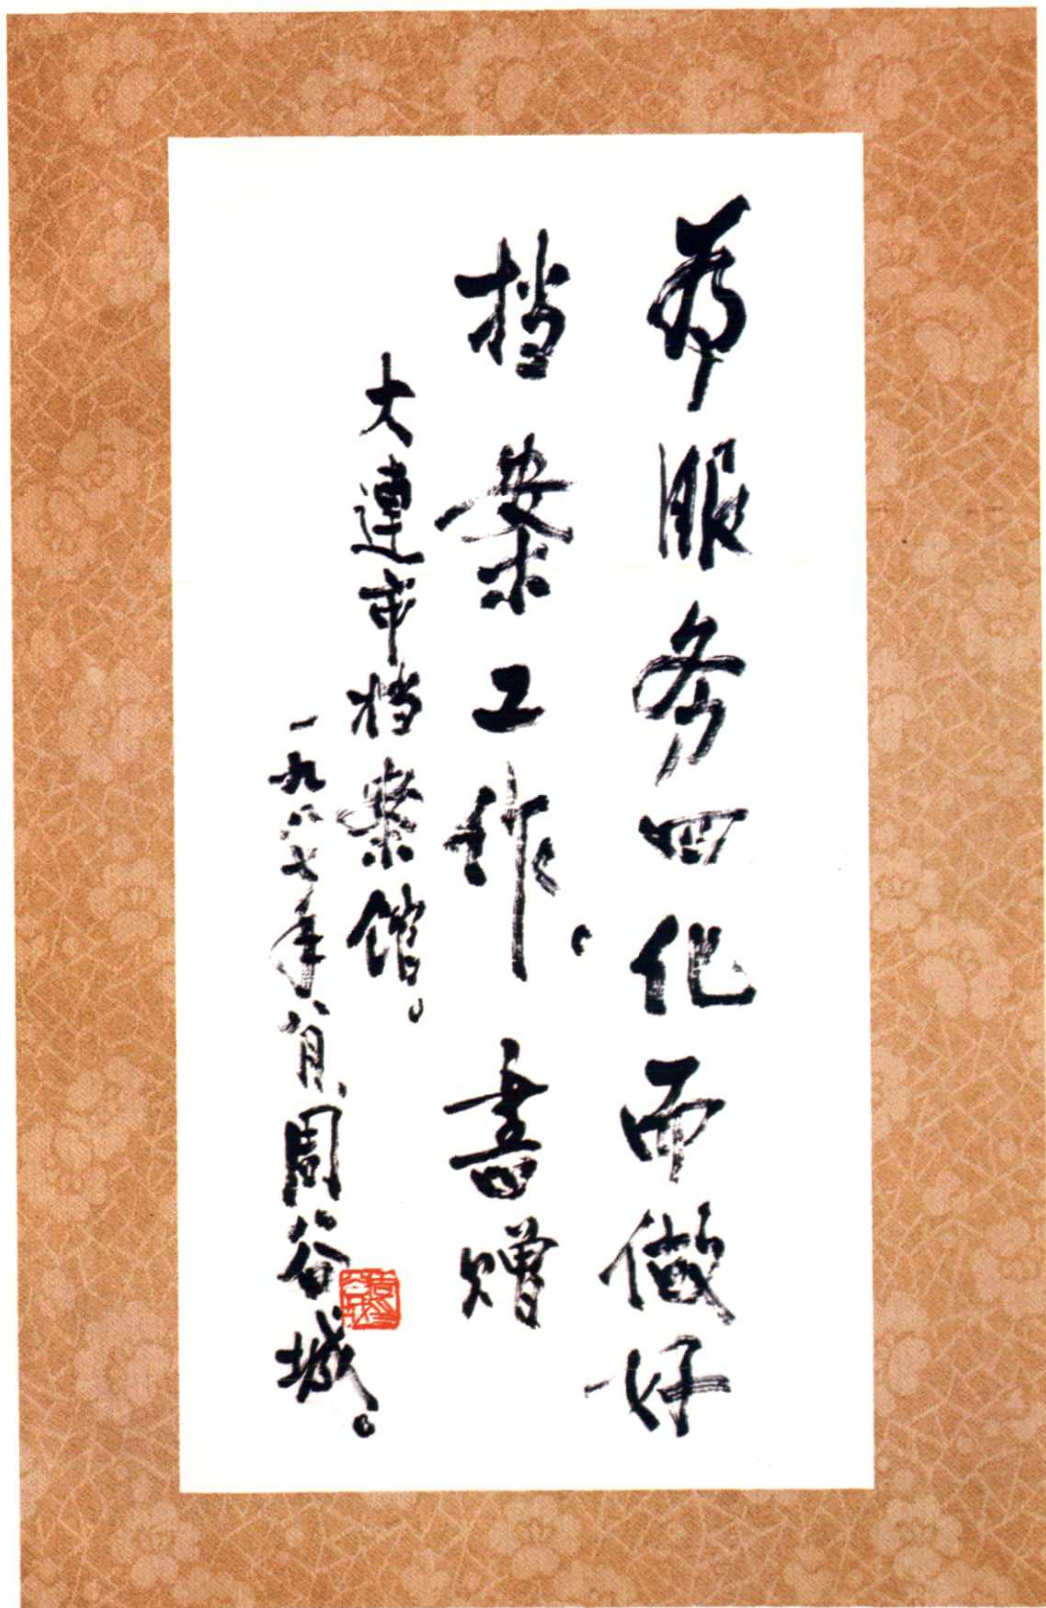 为服务四化而做好
档案工作。書赠
大連市档案馆。
一九八七年八月、周谷城。